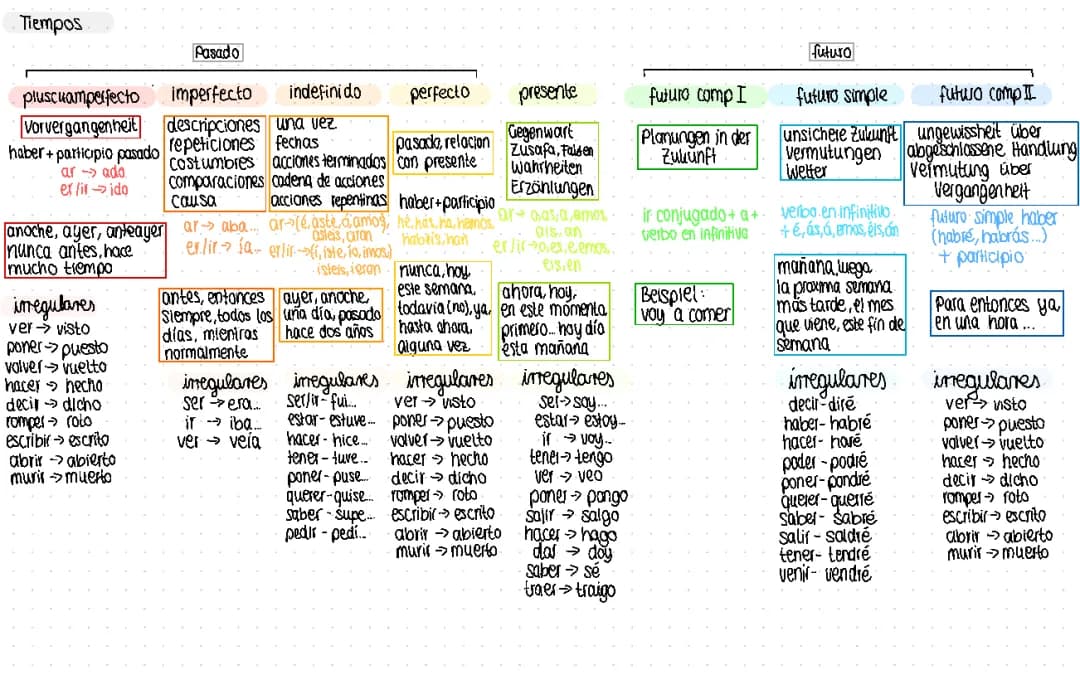 Tiempos
Pasado
futuro
pluscuamperfecto
Vorvergangenheit
haber + participio pasado
ar → ado
er/ir → ido
anoche, ayer, anteayer
nunca antes, hace
mucho tiempo
irregulares
ver → visto
poner → puesto
volver → vuelto
hacer → hecho
decir → dicho
romper → roto
escribir → escrito
abrir → abierto
murir → muerto
imperfecto
descripciones
repeticiones
costumbres
comparaciones
causa
ar → aba...
er/ir → ía...
antes, entonces
siempre, todos los
días, mientras
normalmente
irregulares
ser → era...
ir → iba...
ver → veía
indefinido
una vez
fechas
acciones terminados
cadena de acciones
acciones repentinas
ar → (é, aste, ó, amos,
asteis, aron
er/ir → (í, iste, ío, imos,
isteis, ieron
ayer, anoche,
una día, pasado
hace dos años
irregulares
ser/ir - fui...
estar - estuve...
hacer - hice...
tener - tuve...
poner - puse...
querer - quise...
saber - supe...
pedir - pedí...
perfecto
pasado, relacion
con presente
haber + participio
hé, hás, ha, hemos
habéis, han
nunca, hoy,
este semana,
todavía (no), ya,
hasta ahora,
alguna vez
irregulares
ver → visto
poner → puesto
volver → vuelto
hacer → hecho
decir → dicho
romper → roto
escribir → escrito
abrir → abierto
murir → muerto
presente
Gegenwart
Zusafa,
Wahrheiten
Erzählungen
ar → o, as, a, amos,
áis, an
er/ir → o, es, e, emos,
éis, en
ahora, hoy,
en este momento
primero... hoy día
ésta mañana
irregulares
ser → soy...
estar → estoy...
ir → voy...
tener → tengo
ver → veo
poner → pongo
salir → salgo
hacer → hago
dar → doy
saber → sé
traer → traigo
futuro comp I
Planungen in der
Zukunft
ir conjugado + a +
verbo en infinitivo
Beispiel:
voy a comer
futuro simple
unsichere Zukunft
Vermutungen
Wetter
verbo en infinitivo
+ é, ás, á, emos, éis, án
mañana, luego,
la proxima semana
más tarde, el mes
que viene, este fin de
semana
irregulares
decir - diré
haber - habré
hacer - haré
poder - podré
poner - pondré
querer - querré
saber - sabré
salir - saldré
tener - tendré
venir - vendré
futuro comp II
ungewissheit über
abgeschlossene Handlung
Vermutung über
Vergangenheit
futuro simple haber
(habré, habrás...)
+ participio
Para entonces ya,
en una hora ...
irregulares
ver → visto
poner → puesto
volver → vuelto
hacer → hecho
decir → dicho
romper → roto
escribir → escrito
abrir → abierto
murir → muerto